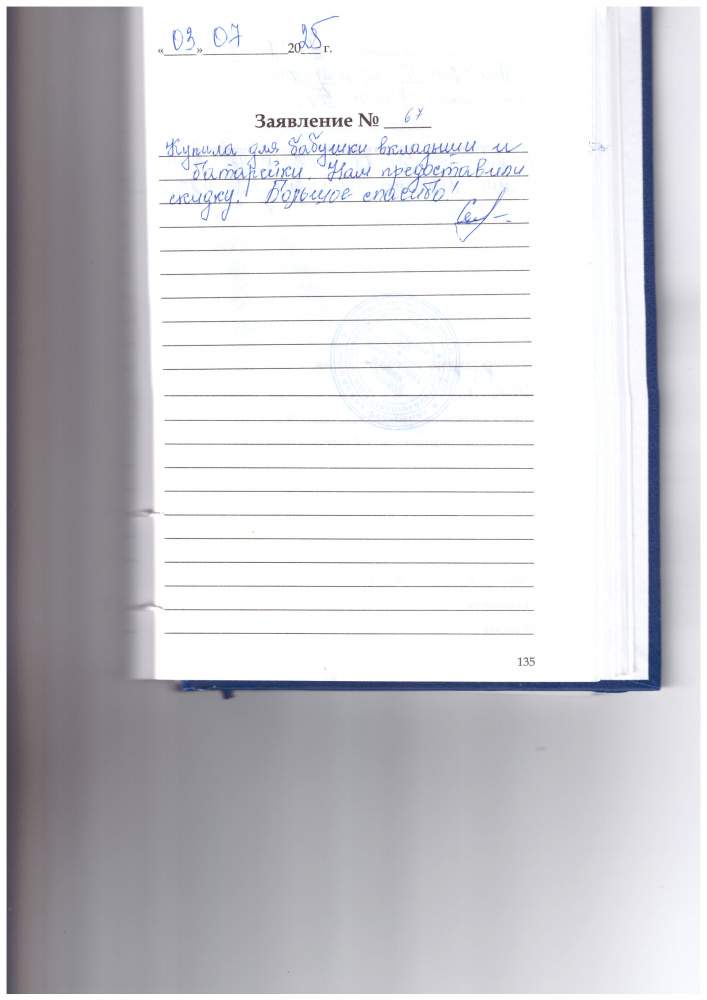 «03» 07 2025 г.
Заявление № 67
Купила для бабушки вкладыши и
батарейки. Нам предоставили
скидку. Большое спасибо!
135